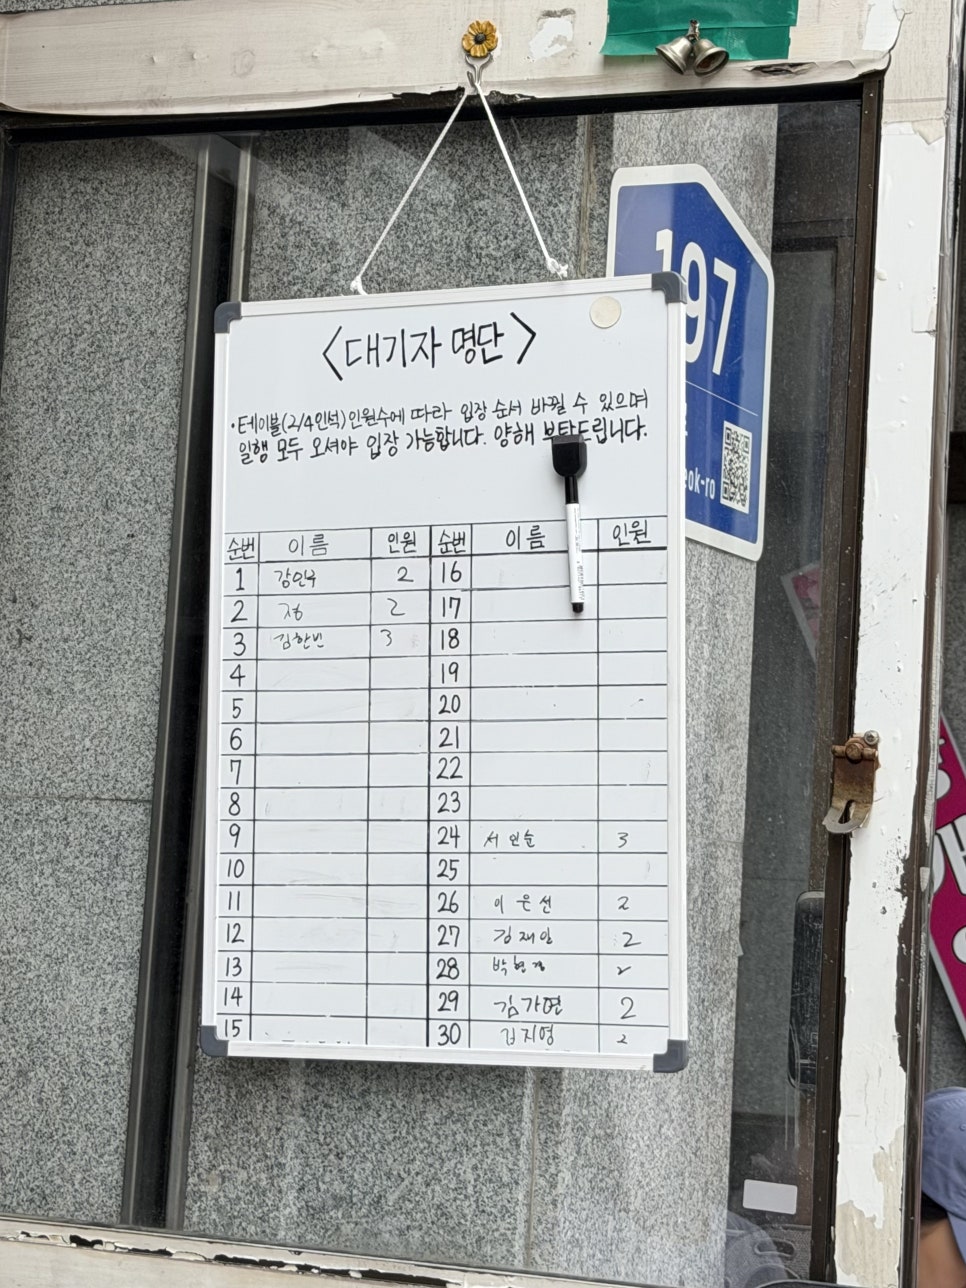 197
<대기자 명단>
·테이블(2/4인석)인원수에 따라 입장 순서 바뀔 수 있으며
일행 모두 오셔야 입장 가능합니다. 양해 부탁드립니다.
eok-ro
순번 이름 인원 순번 이름 인원
1 강인구 2 16
2 정 2 17
3 김한빈 3 18
4 19
5 20
6 21
7 22
8 23
9 24 서인순 3
10 25
11 26 이은선 2
12 27 김재일 2
13 28 2
14 29 김가연 2
15 30 김지영 2